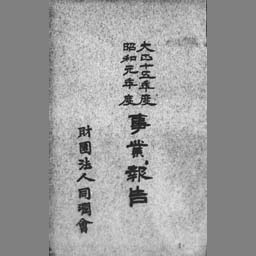 大正十五年度
昭和元年度
事業報告
財團法人同潤會